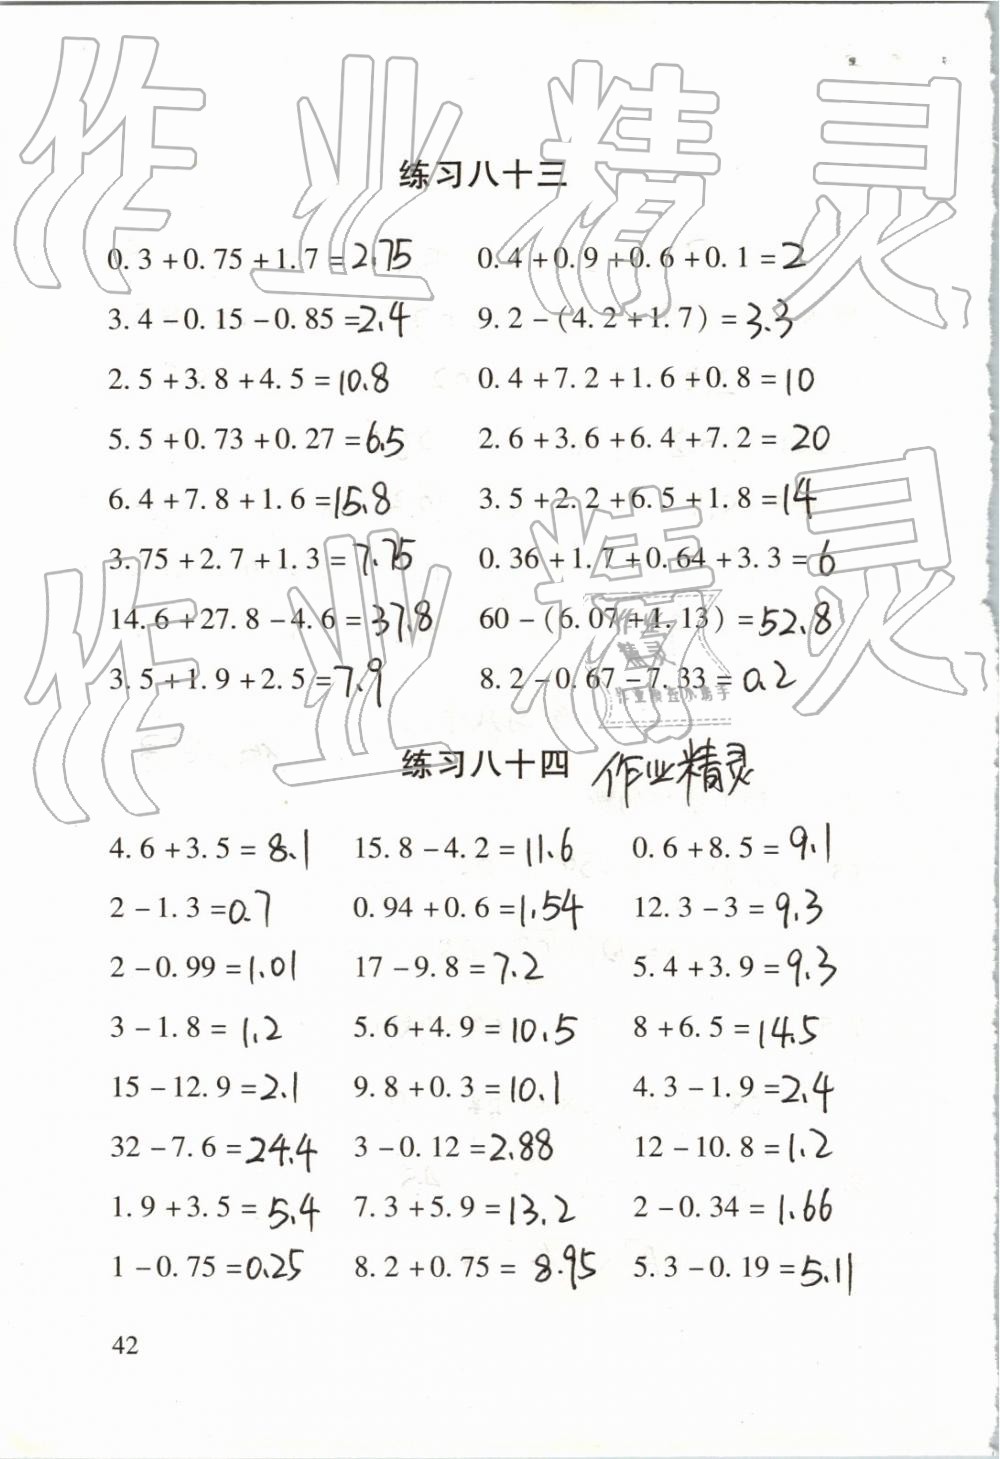 作业精灵
练习八十三
0.3+0.75+1.7=2.75 0.4+0.9+0.6+0.1=2
3.4-0.15-0.85=2.4 9.2-(4.2+1.7)=3.3
2.5+3.8+4.5=10.8 0.4+7.2+1.6+0.8=10
5.5+0.73+0.27=6.5 2.6+3.6+6.4+7.2=20
6.4+7.8+1.6=15.8 3.5+2.2+6.5+1.8=14
3.75+2.7+1.3=7.75 0.36+1.7+0.64+3.3=6
14.6+27.8-4.6=37.8 60-(6.07+1.13)=52.8
3.5+1.9+2.5=7.9 8.2-0.67-7.33=0.2
作业精灵
作业
精灵
作业检查小帮手
练习八十四 作业精灵
4.6+3.5=8.1 15.8-4.2=11.6 0.6+8.5=9.1
2-1.3=0.7 0.94+0.6=1.54 12.3-3=9.3
2-0.99=1.01 17-9.8=7.2 5.4+3.9=9.3
3-1.8=1.2 5.6+4.9=10.5 8+6.5=14.5
15-12.9=2.1 9.8+0.3=10.1 4.3-1.9=2.4
32-7.6=24.4 3-0.12=2.88 12-10.8=1.2
1.9+3.5=5.4 7.3+5.9=13.2 2-0.34=1.66
1-0.75=0.25 8.2+0.75=8.95 5.3-0.19=5.11
42